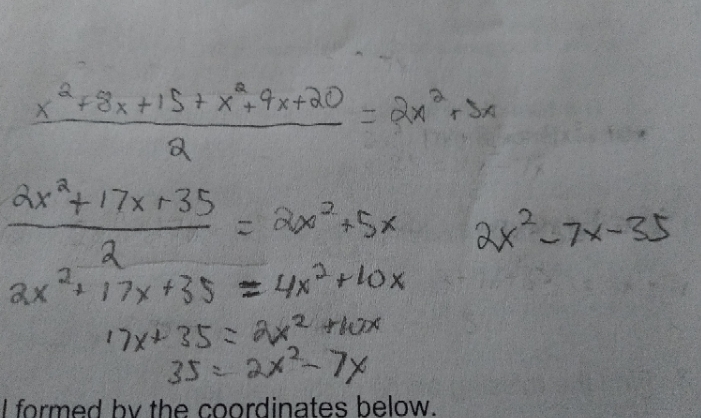 x²+8x+15+x²+9x+20 = 2x²+5x
2
2x²+17x+35 = 2x²+5x
2
2x²-7x-35
2x²+17x+35 = 4x²+10x
17x+35 = 2x²+10x
35 = 2x²-7x
formed by the coordinates below.